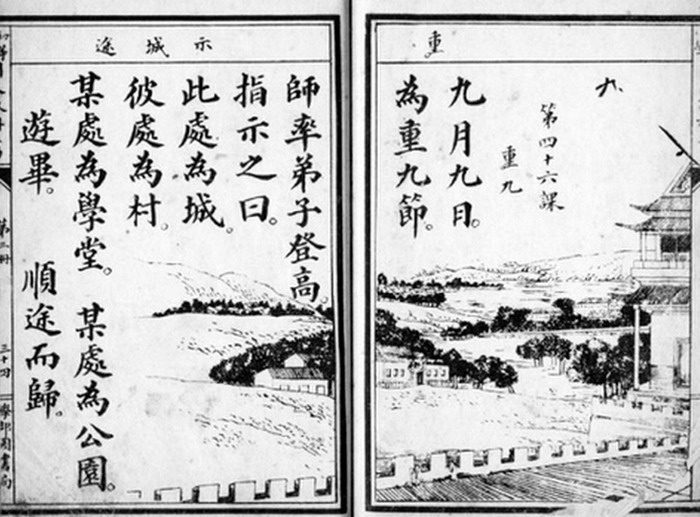 重
九
第四十六課
重九
九月九日。
為重九節。
示 城 途
師率弟子登高。
指示之曰。
此處為城。
彼處為村。
某處為學堂。 某處為公園。
遊畢。 順途而歸。
學部圖書局